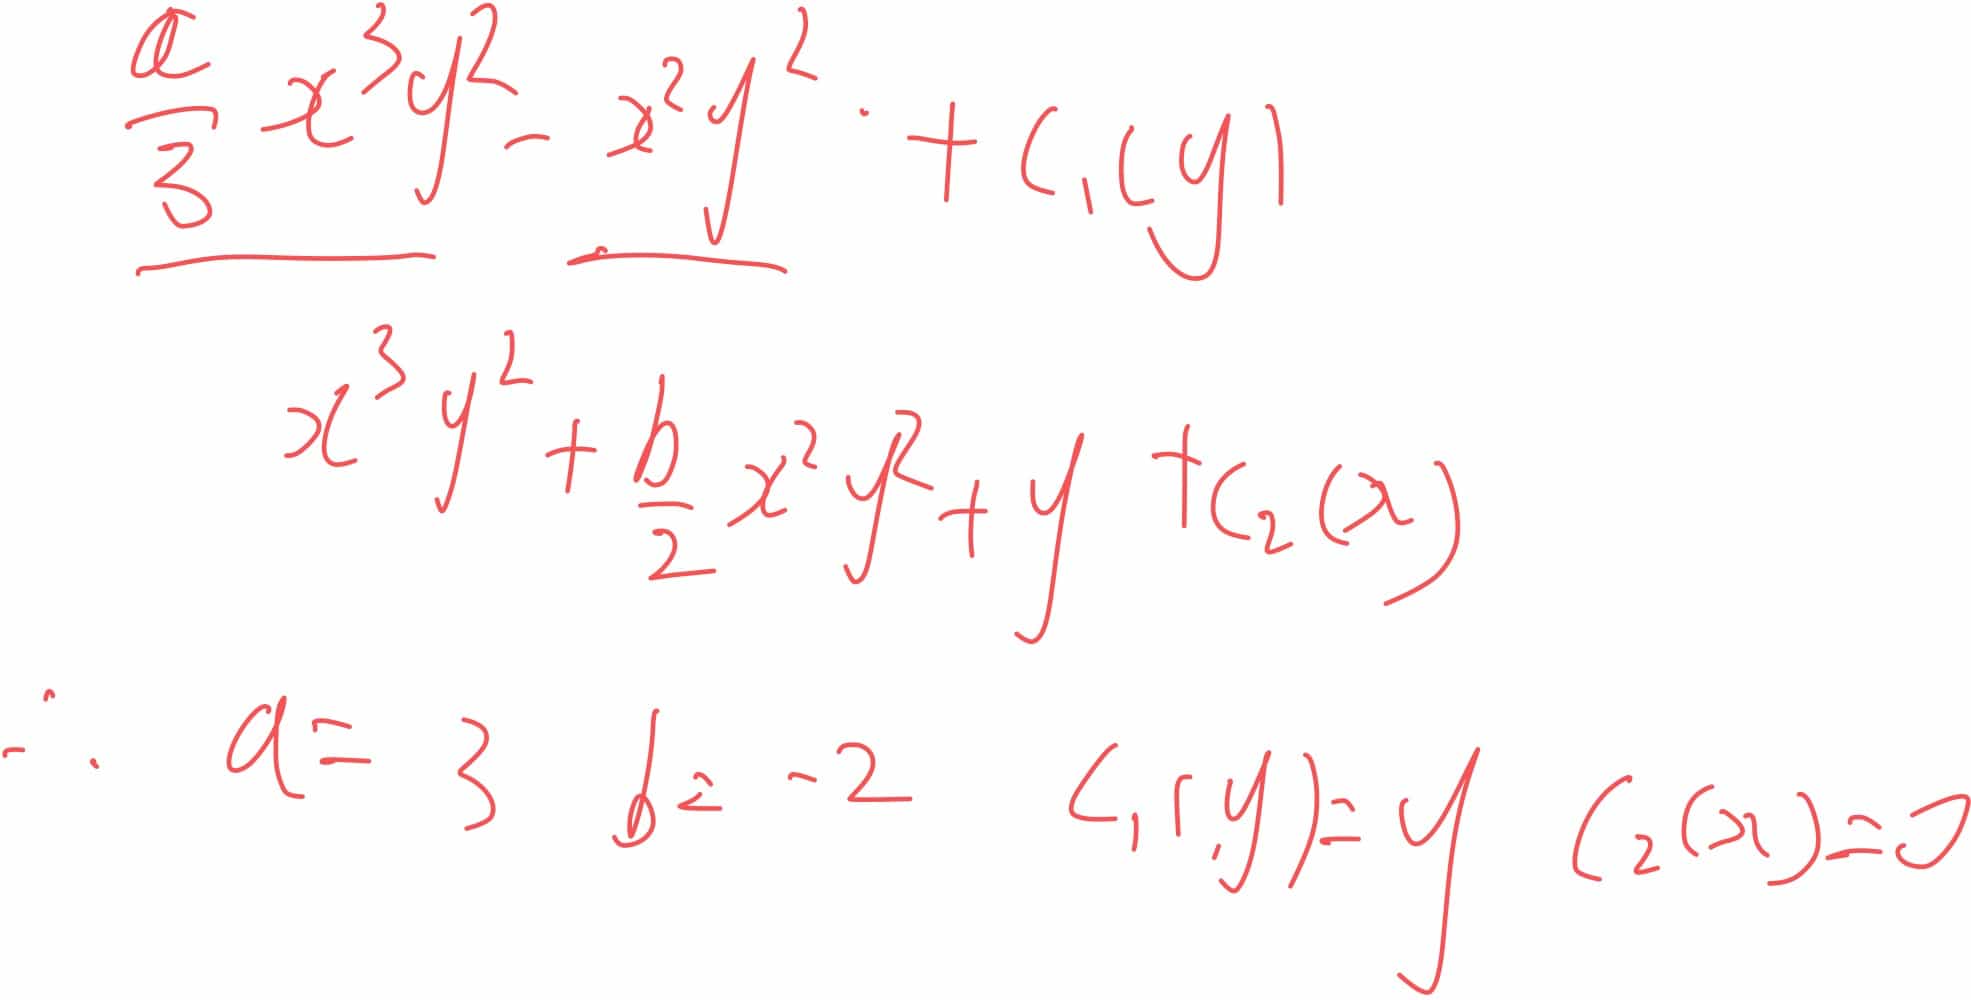 a/3 x³y² - x²y² · + C₁(y)
x³y² + b/2 x²y² + y + C₂(x)
∴ a = 3 b = -2 C₁(y) = y C₂(x) = 0